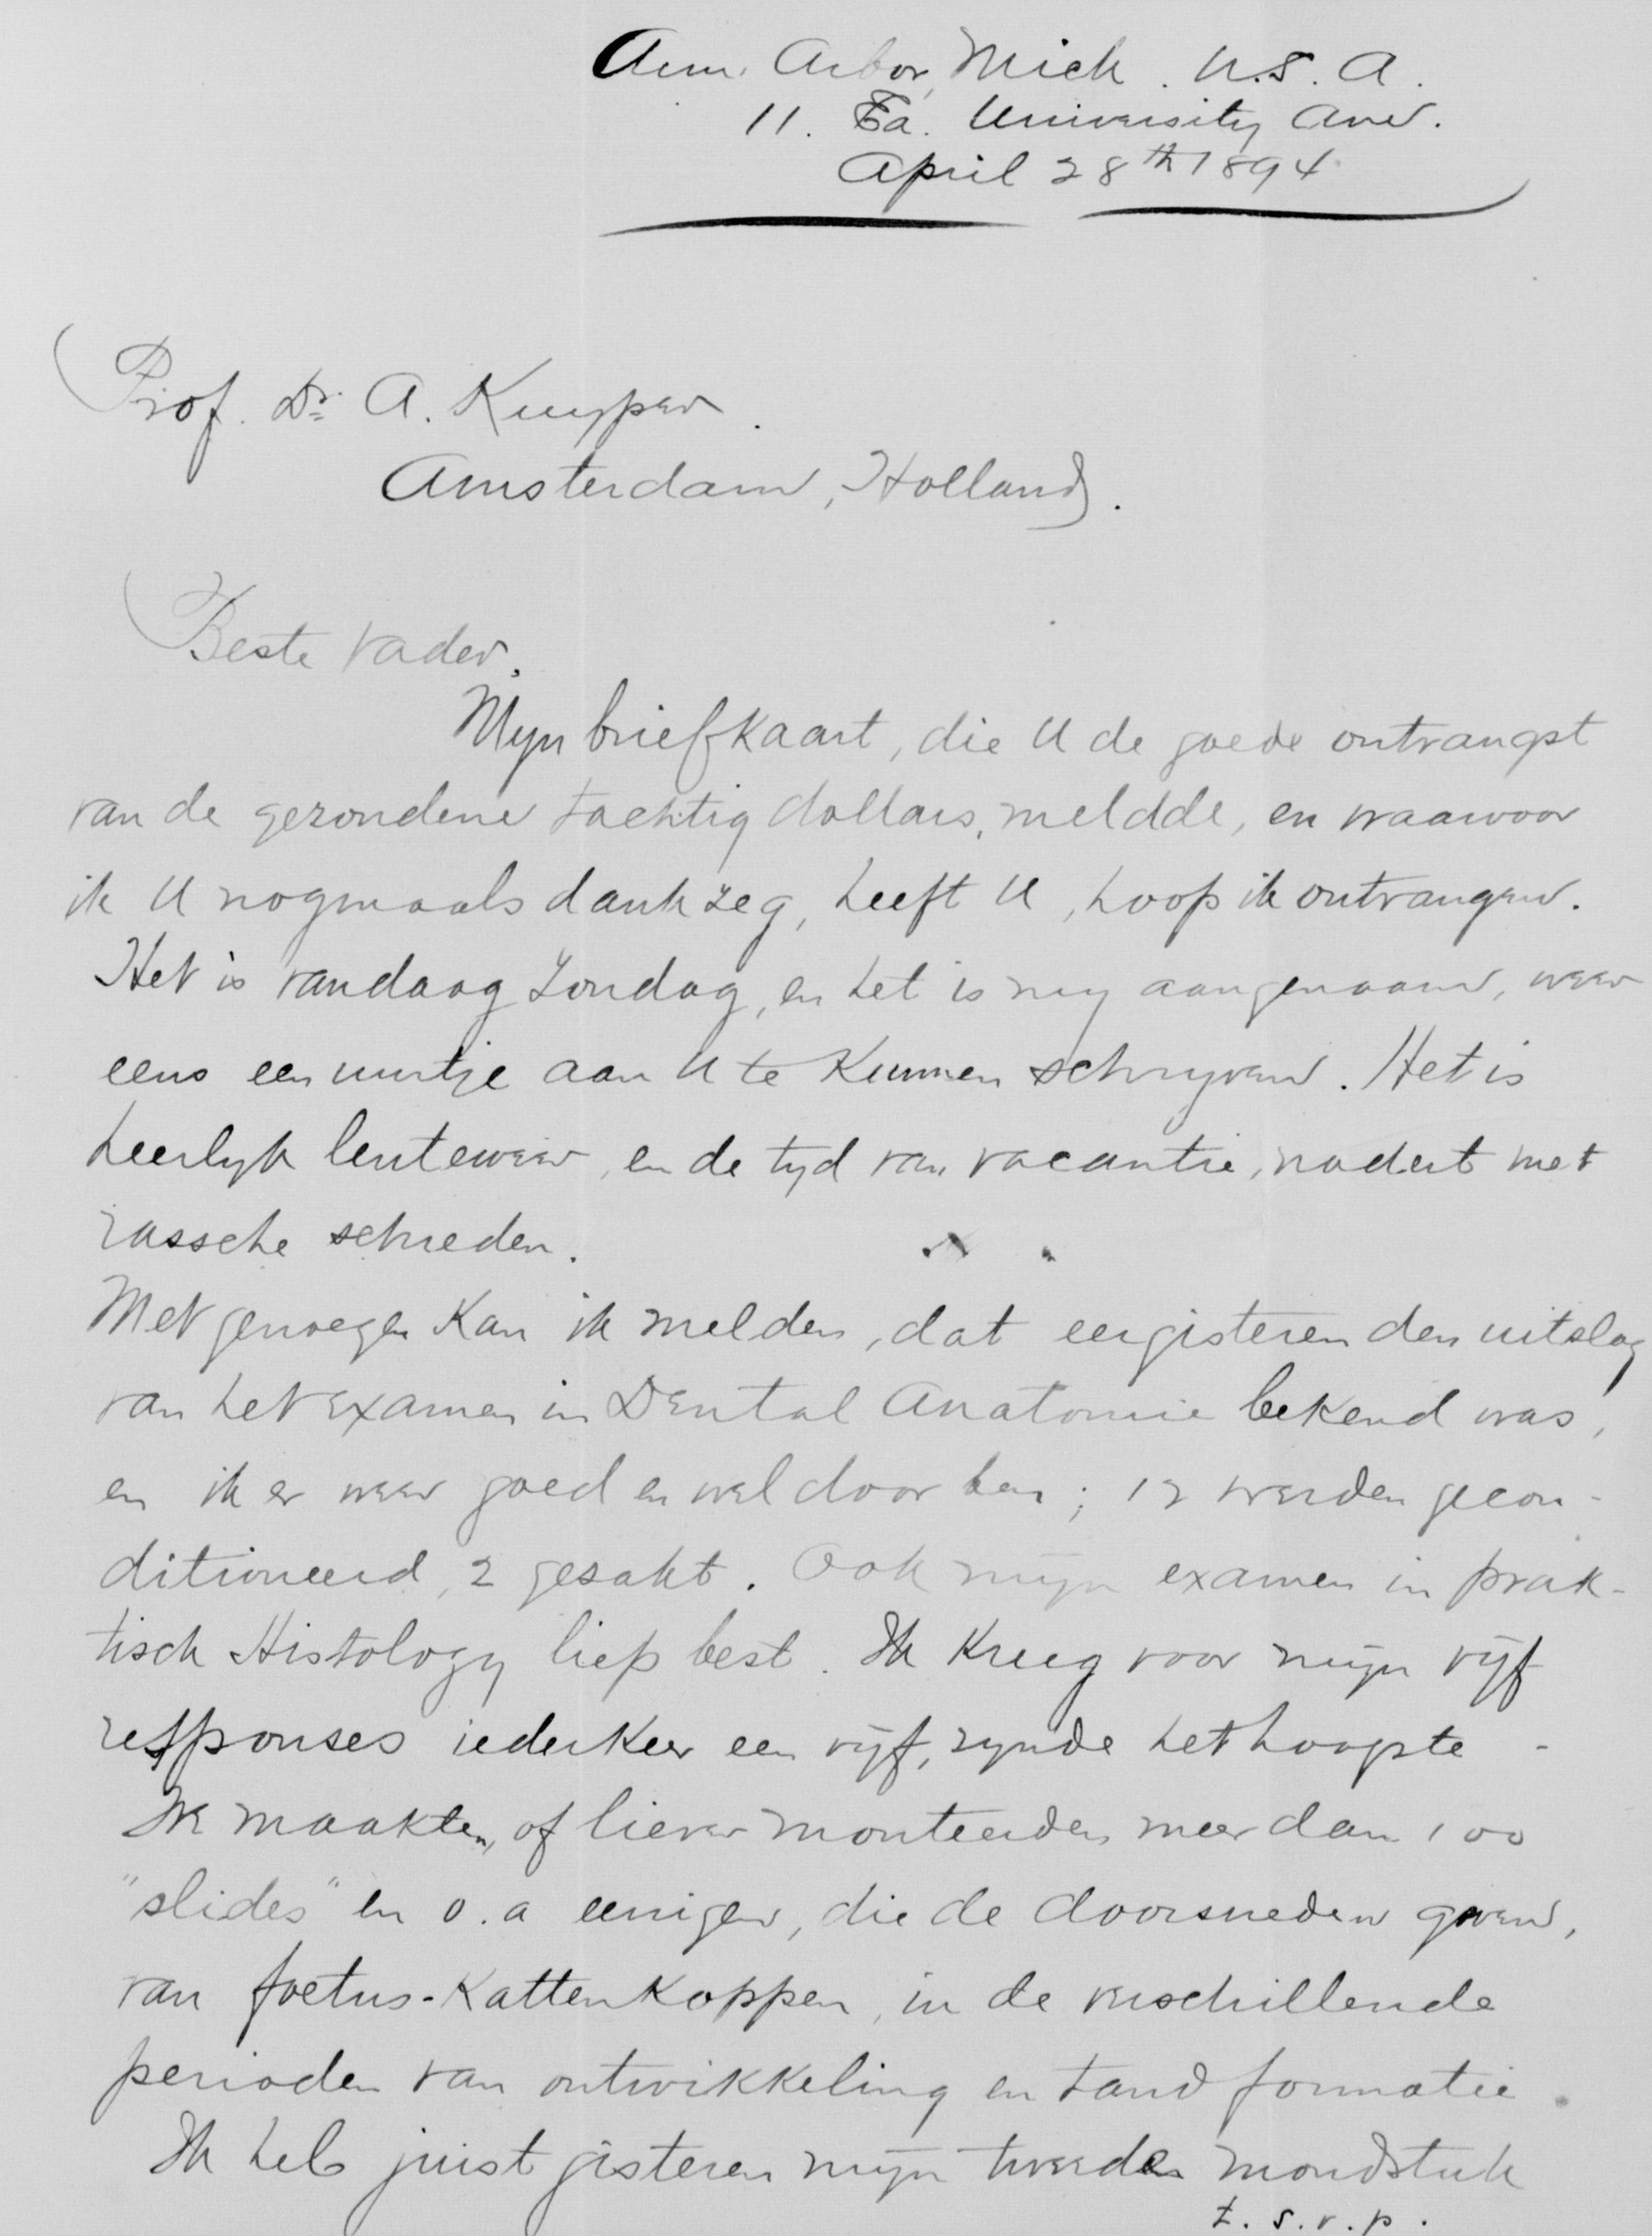 Ann. Arbor, Mich. U.S.A.
11. Ea. University Ave.
April 28th 1894
Prof. Dr. A. Kuyper.
Amsterdam, Holland.
Beste Vader.
Myn briefkaart, die U de goede ontvangst
van de gezondene tachtig dollars, meldde, en waarvoor
ik U nogmaals dank zeg, heeft U, hoop ik ontvangen.
Het is vandaag Zondag, en het is my aangenaam, weer
eens een uurtje aan U te kunnen schryven. Het is
heerlyk lenteweer, en de tyd van vacantie, nadert met
rassche schreden.
Met genoegen kan ik melden, dat eergisteren den uitslag
van het examen in Dental Anatomie bekend was,
en ik er weer goed en wel door ben; 12 werden gecon-
ditioneerd, 2 gesakt. Ook mijn examen in prak-
tisch Histology liep best. Ik kreeg voor mijn vijf
responses iederkeer een vijf, zynde het hoogste -
Ik maakten, of liever monteerden meer dan 100
"slides" en o.a eenigen, die de doorsneden gaven,
van foetus-Kattenkoppen, in de verschillende
perioden van ontwikkeling en tand formatie.
Ik heb juist gisteren mijn tweeden mondstuk
t.s.v.p.